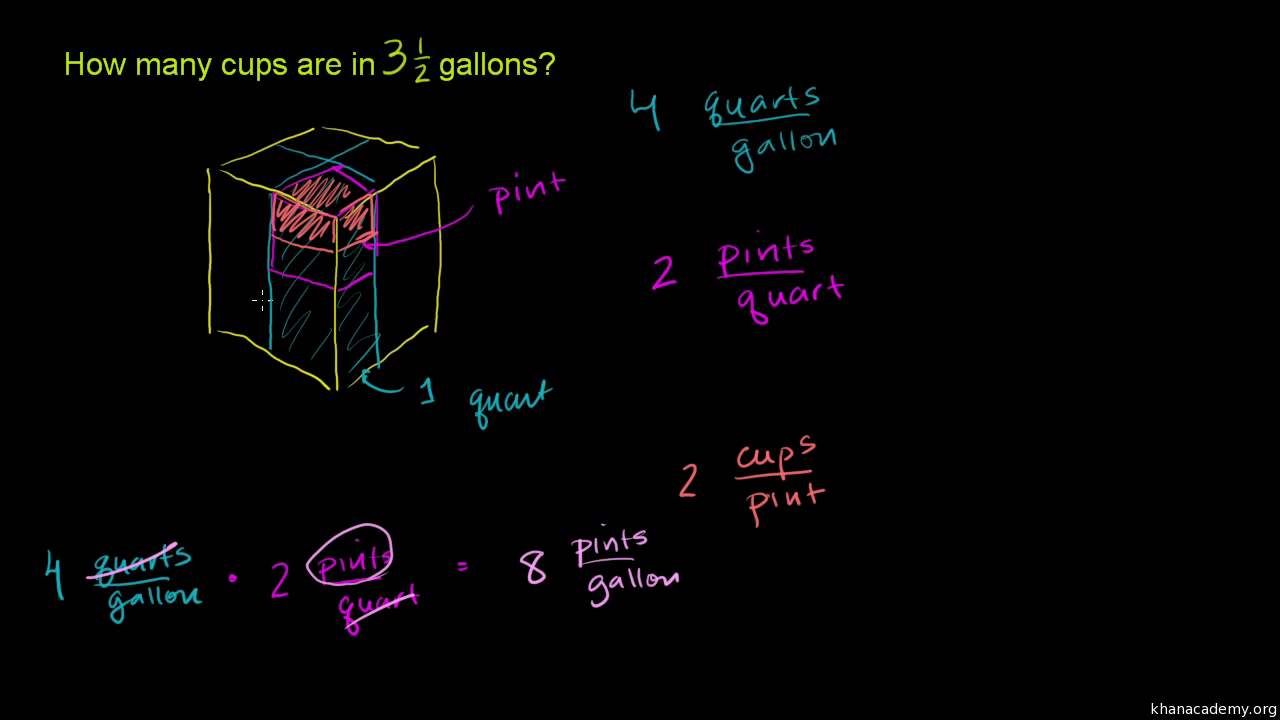 How many cups are in 3 1/2 gallons?
4 quarts/gallon
pint
2 pints/quart
1 quart
2 cups/pint
4 quarts/gallon · 2 pints/quart = 8 pints/gallon
khanacademy.org